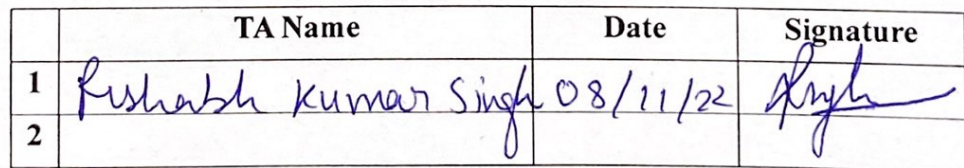 TA Name Date Signature
1 Rishabh Kumar Singh 08/11/22
2